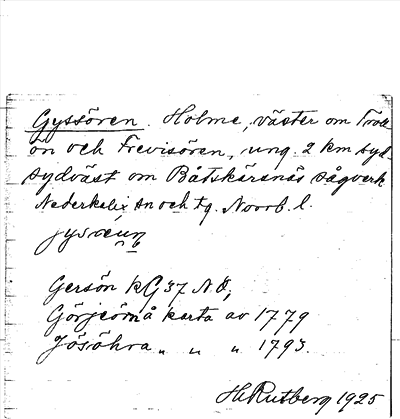 Gyssören. Holme, väster om Tröll
ön och Frevisören, ung. 2 km syd
sydväst om Båtskärsnäs sågverk
Nederkalix sn och tg. Norrb. l.
Gersön kG 37 NÖ,
karta av 1779
Jösöhra „ „ „ 1793.
H Rutberg 1925